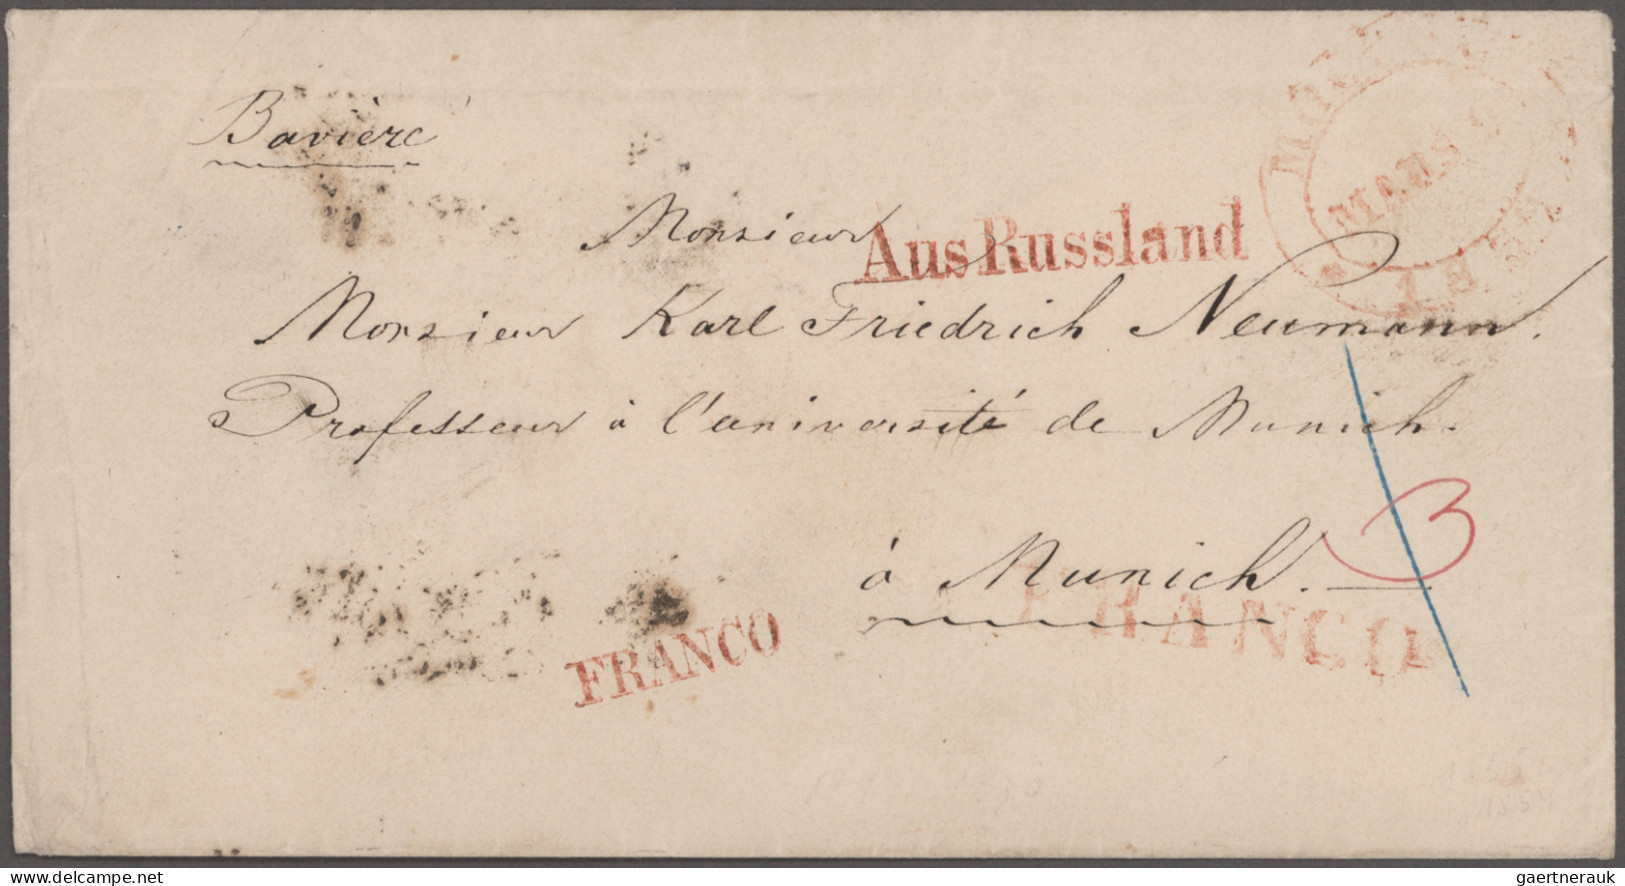 Bavière
Monsieur
Aus Russland
Monsieur Karl Friedrich Neumann.
Professeur à l'université de Munich.
3
à Munich.
FRANCO
FRANCO
delcampe.net
gaertnerauk